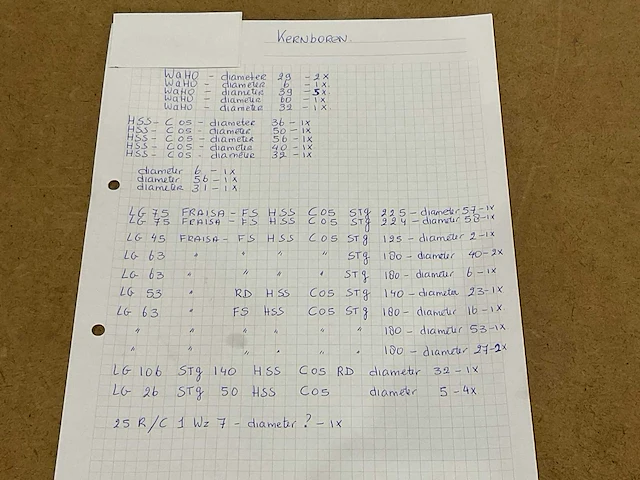 KERNBOREN.
WaHO - diameter 29 - 2x
WaHO - diameter 6 - 1x.
WaHO - diameter 39 - 5x.
WaHO - diameter 60 - 1x
WaHO - diameter 32 - 1x.
HSS - CO5 - diameter 36 - 1x
HSS - CO5 - diameter 50 - 1x
HSS - CO5 - diameter 56 - 1x
HSS - CO5 - diameter 40 - 1x
HSS - CO5 - diameter 32 - 1x
diameter 6 - 1x
diameter 56 - 1x
diameter 31 - 1x
LG 75 FRAISA - FS HSS CO5 Stg 225 - diameter 57 - 1x
LG 75 FRAISA - FS HSS CO5 Stg 224 - diameter 58 - 1x
LG 45 FRAISA - FS HSS CO5 Stg 125 - diameter 2 - 1x
LG 63 " " " " Stg 180 - diameter 40 - 2x
LG 63 " " " " Stg 180 - diameter 6 - 1x
LG 53 " RD HSS CO5 Stg 140 - diameter 23 - 1x
LG 63 " FS HSS CO5 Stg 180 - diameter 16 - 1x
" " " " " " 180 - diameter 53 - 1x
" " " " " " 180 - diameter 27 - 2x
LG 106 Stg 140 HSS CO5 RD diameter 32 - 1x
LG 26 Stg 50 HSS CO5 diameter 5 - 4x
25 R/C 1 Wz 7 - diameter ? - 1x